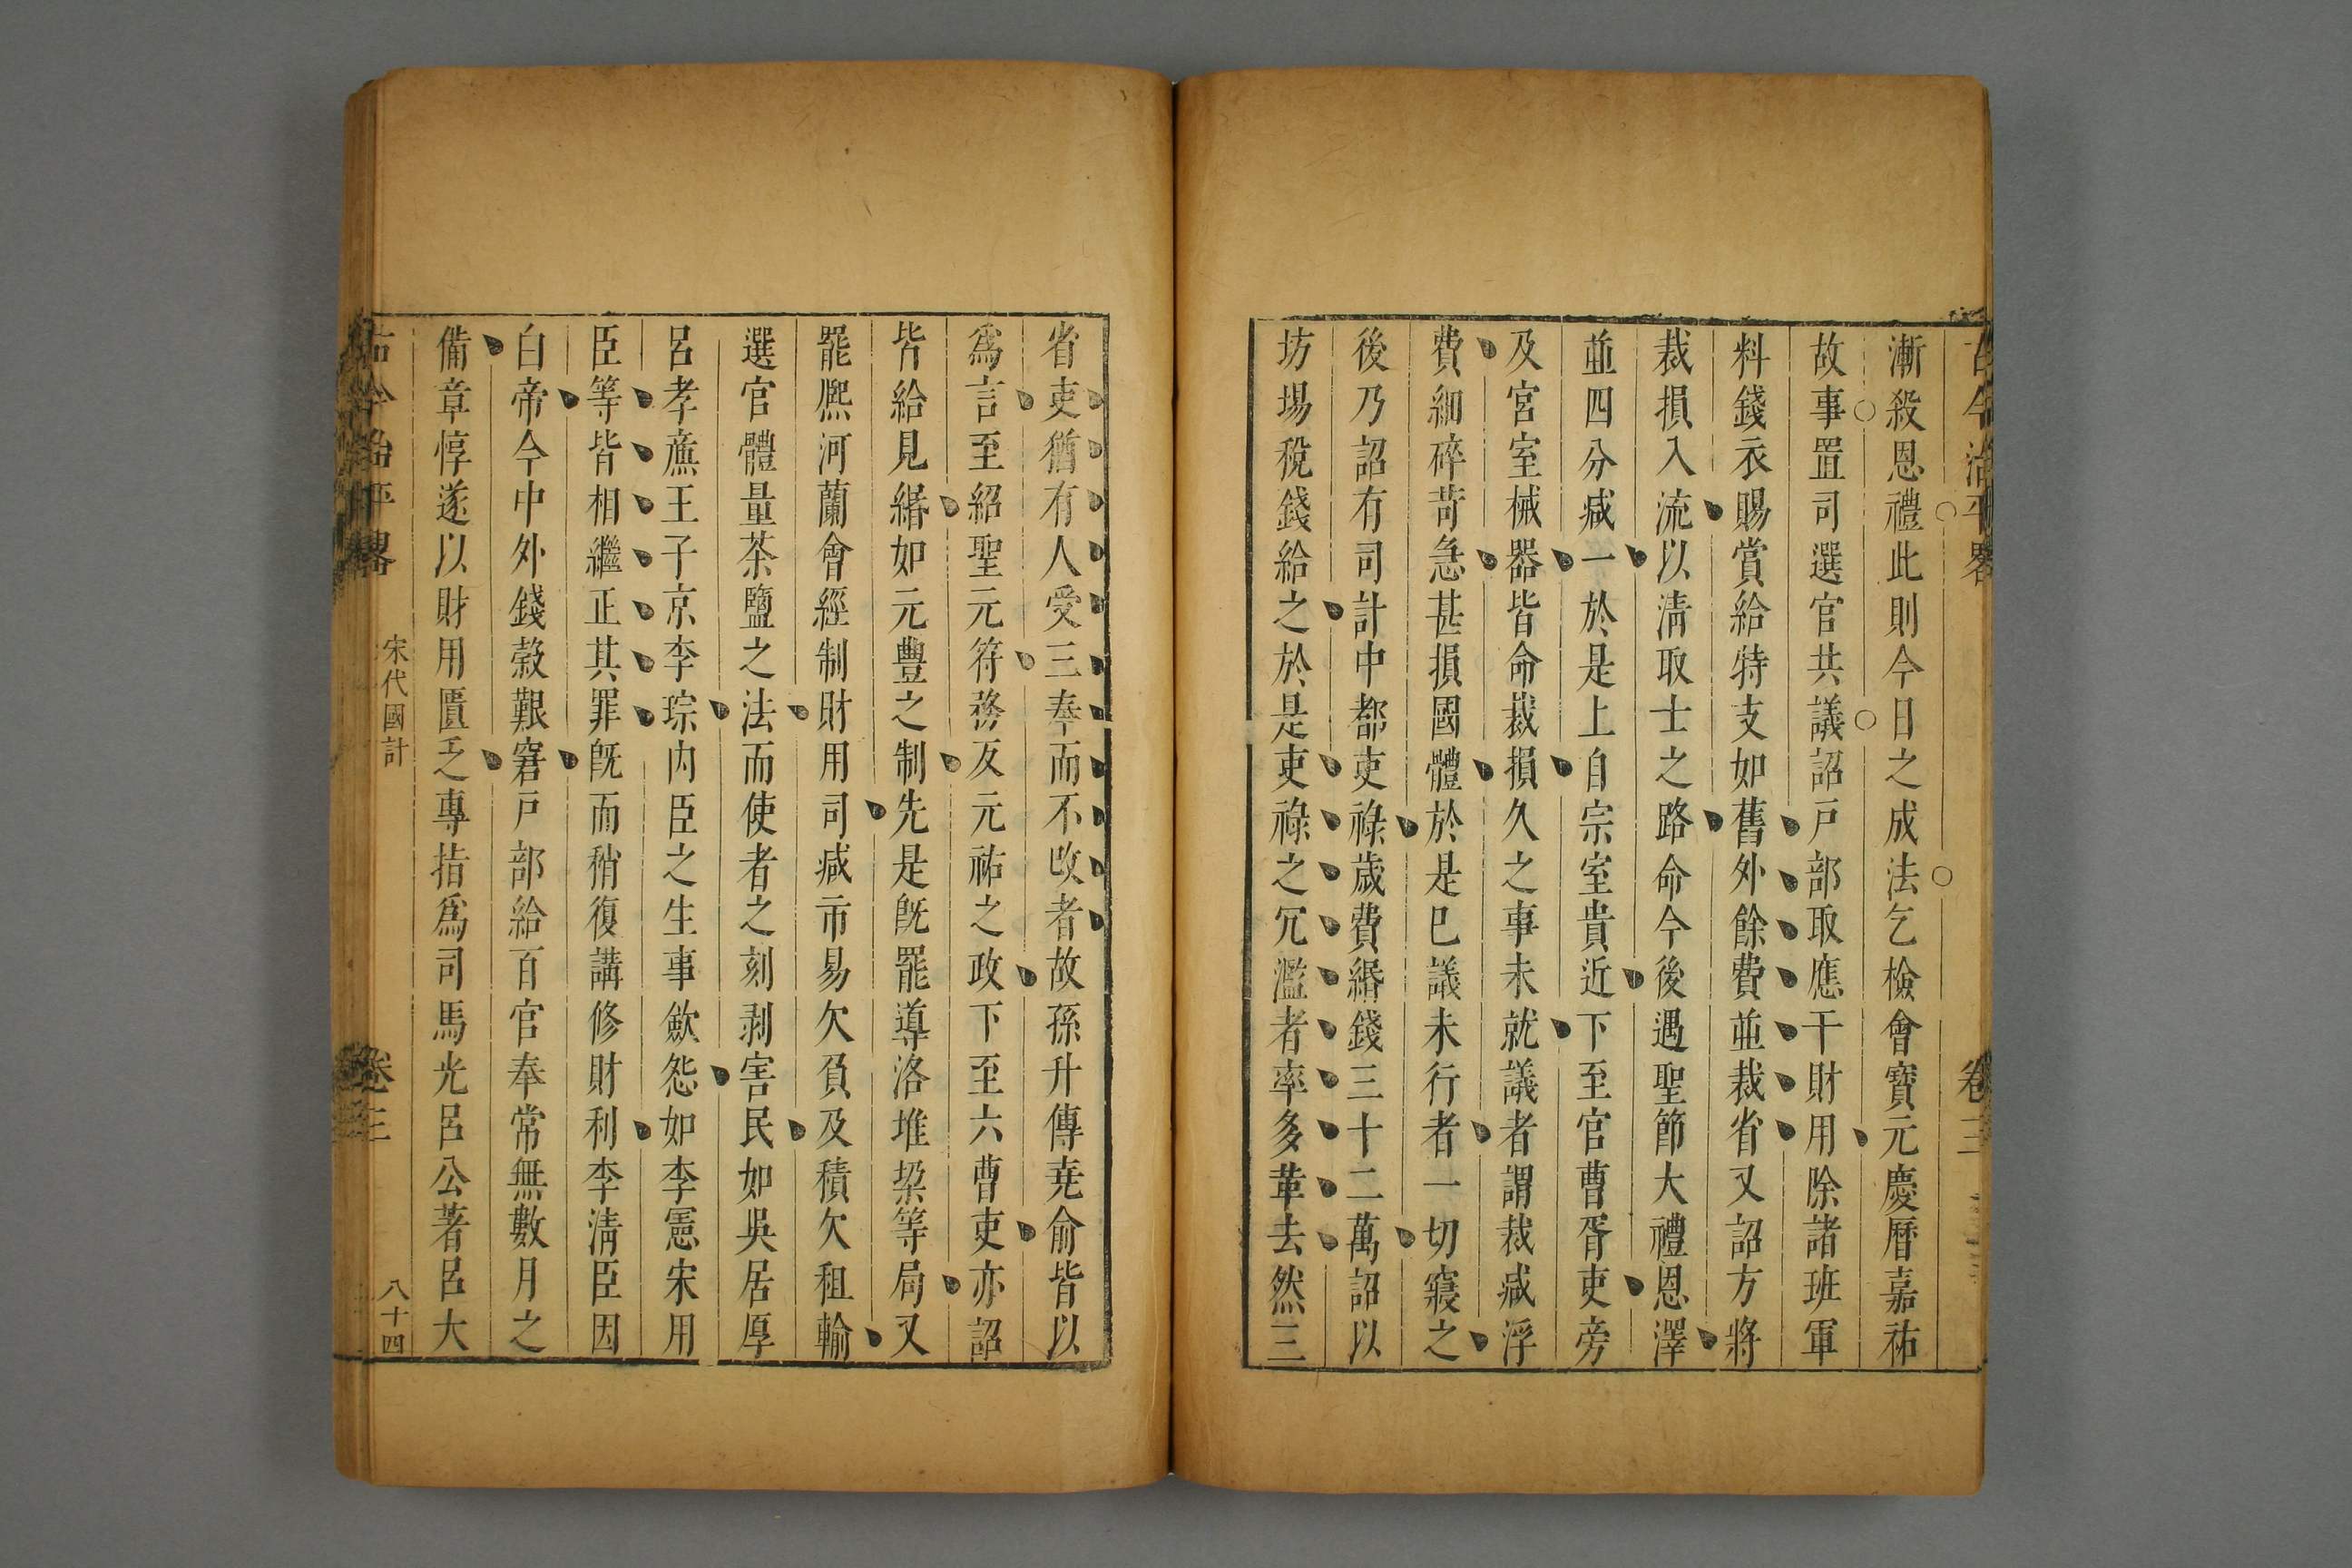 古今治平畧 卷三
漸殺恩禮此則今日之成法乞檢會寶元慶曆嘉祐
故事置司選官共議詔戸部取應干財用除諸班軍
料錢衣賜賞給特支如舊外餘費並裁省又詔方將
裁損入流以淸取士之路命今後遇聖節大禮恩澤
並四分减一於是上自宗室貴近下至官曹胥吏旁
及宮室械器皆命裁損久之事未就議者謂裁减浮
費細碎苛急甚損國體於是已議未行者一切寢之
後乃詔有司計中都吏祿歲費緡錢三十二萬詔以
坊場稅錢給之於是吏祿之冗濫者率多革去然三
省吏猶有人受三奉而不改者故孫升傅堯俞皆以
爲言至紹聖元符務反元祐之政下至六曹吏亦詔
皆給見緡如元豐之制先是旣罷導洛堆垜等局又
罷熈河蘭會經制財用司减市易欠負及積欠租輸
選官體量茶鹽之法而使者之刻剥害民如吳居厚
呂孝廉王子京李琮内臣之生事歛怨如李憲宋用
臣等皆相繼正其罪旣而稍復講修財利李淸臣因
白帝今中外錢穀艱窘戸部給百官奉常無數月之
備章惇遂以財用匱乏專指爲司馬光呂公著呂大
古今治平畧 宋代國計 卷三 八十四